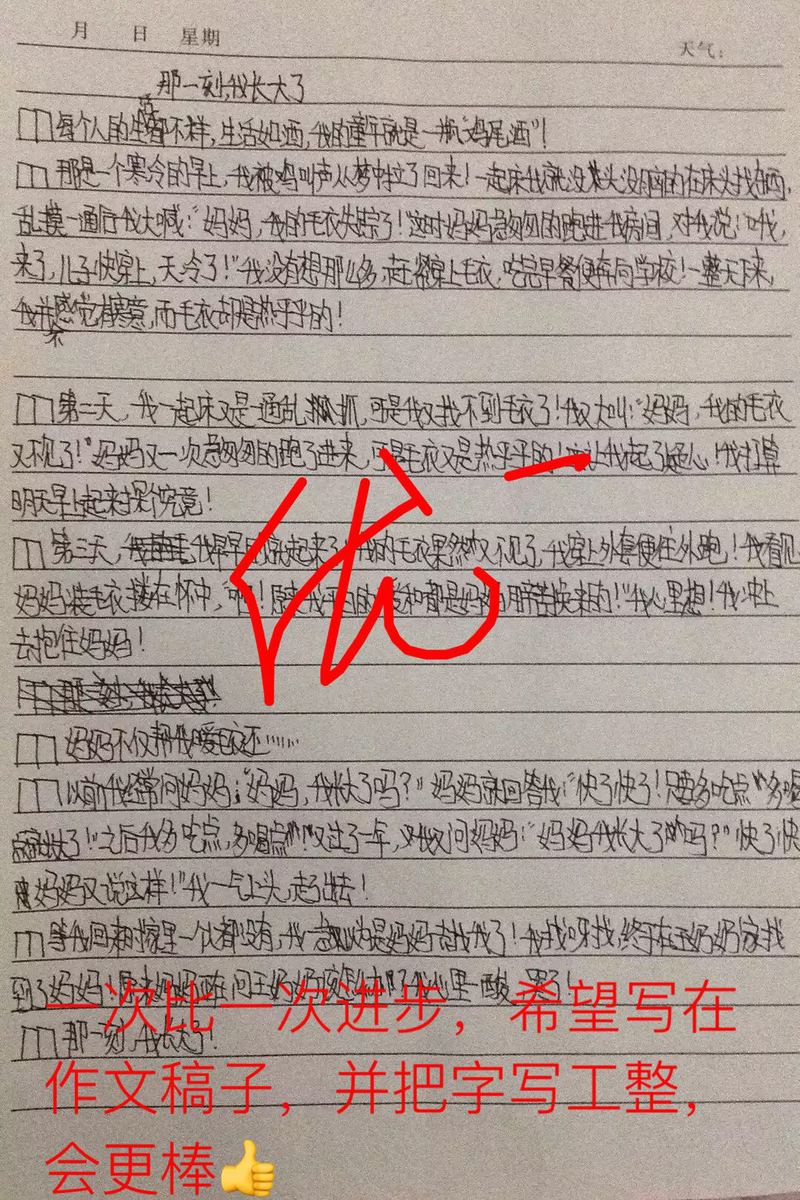 月 日 星期 天气：
那一刻,我长大了
每个人的生活都不样,生活如酒,我的童年就是一瓶"鸡尾酒"!
那是一个寒冷的早上,我被鸡叫声从梦中拉了回来!一起床我就没头没脑的在床头找东西,
乱摸一通后我大喊:"妈妈,我的毛衣失踪了!"这时妈妈急匆匆的跑进我房间,对我说:"哦,
来了,儿子快穿上,天冷了!"我没有想那么多,赶紧穿上毛衣,吃完早餐便奔向学校!一整天下来,
我并不感觉有寒意,而毛衣却是热乎乎的!
第二天,我一起床又是一通乱抓,可是我又找不到毛衣了!我又大叫:"妈妈,我的毛衣
又不见了!"妈妈又一次急匆匆的跑了进来,可是毛衣又是热乎乎的!这让我起了疑心!我打算
明天早上起来探个究竟!
第三天,我早早的就起来了!我的毛衣果然又不见了,我穿上外套便往外跑!我看见
妈妈装毛衣搂在怀中,啊!原来我平日的暖和都是妈妈用换来的!"我心里想!我冲上
去抱住妈妈!
妈妈不仅帮我暖毛衣还……
以前我经常问妈妈:"妈妈,我长大了吗?"妈妈就回答我:"快了快了!只要多吃点"多喝
点就长大了!"之后我多吃点,多喝点"!又过了一年,我又问妈妈:"妈妈我长大了吗?"快了快
妈妈又说这样!"我一气上头,走了出去!
等我回来时家里一个人都没有,我以为是妈妈去找我了!我找呀找,终于在王奶奶家找
到了妈妈!原来妈妈正在问王奶奶我心里一酸,哭了!
那一刻,我长大了!
优一
一次比一次进步，希望写在
作文稿子，并把字写工整，
会更棒👍